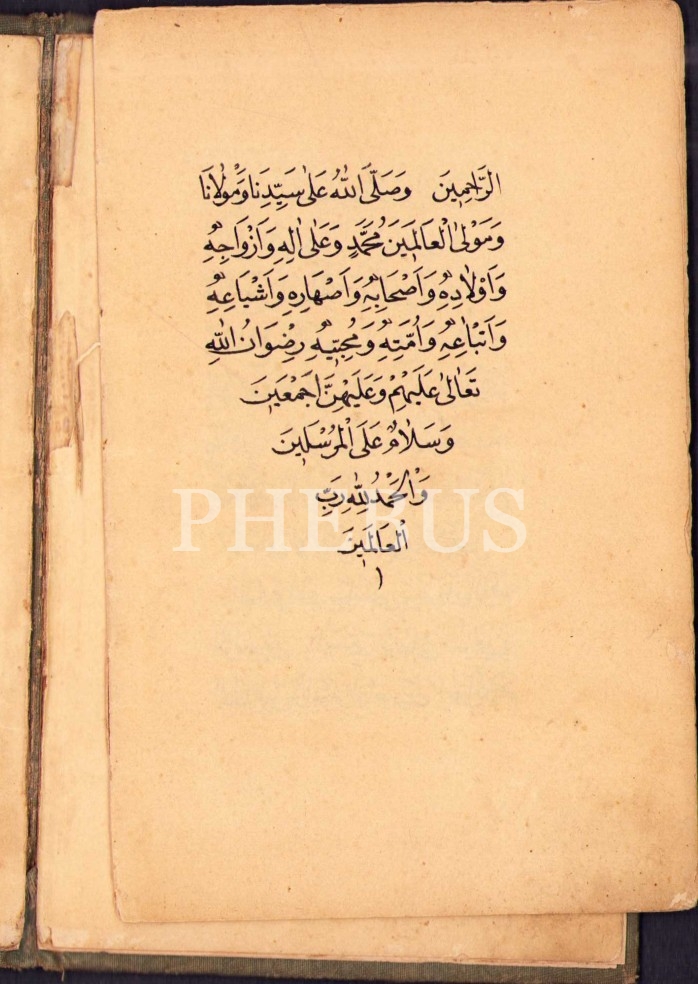 الرَّاحِمِينَ وَصَلَّى اللهُ عَلَى سَيِّدِنَا وَمَوْلَانَا
وَمَوْلَى الْعَالَمِينَ مُحَمَّدٍ وَعَلَى اٰلِهِ وَاَزْوَاجِهِ
وَاَوْلَادِهِ وَاَصْحَابِهِ وَاَصْهَارِهِ وَاَشْيَاعِهِ
وَاَتْبَاعِهِ وَاُمَّتِهِ وَمُحِبِّيهِ رِضْوَانُ اللهِ
تَعَالَى عَلَيْهِمْ وَعَلَيْهِنَّ اَجْمَعِينَ
وَسَلَامٌ عَلَى الْمُرْسَلِينَ
وَالْحَمْدُ لِلّٰهِ رَبِّ
PHEBUS
الْعَالَمِينَ